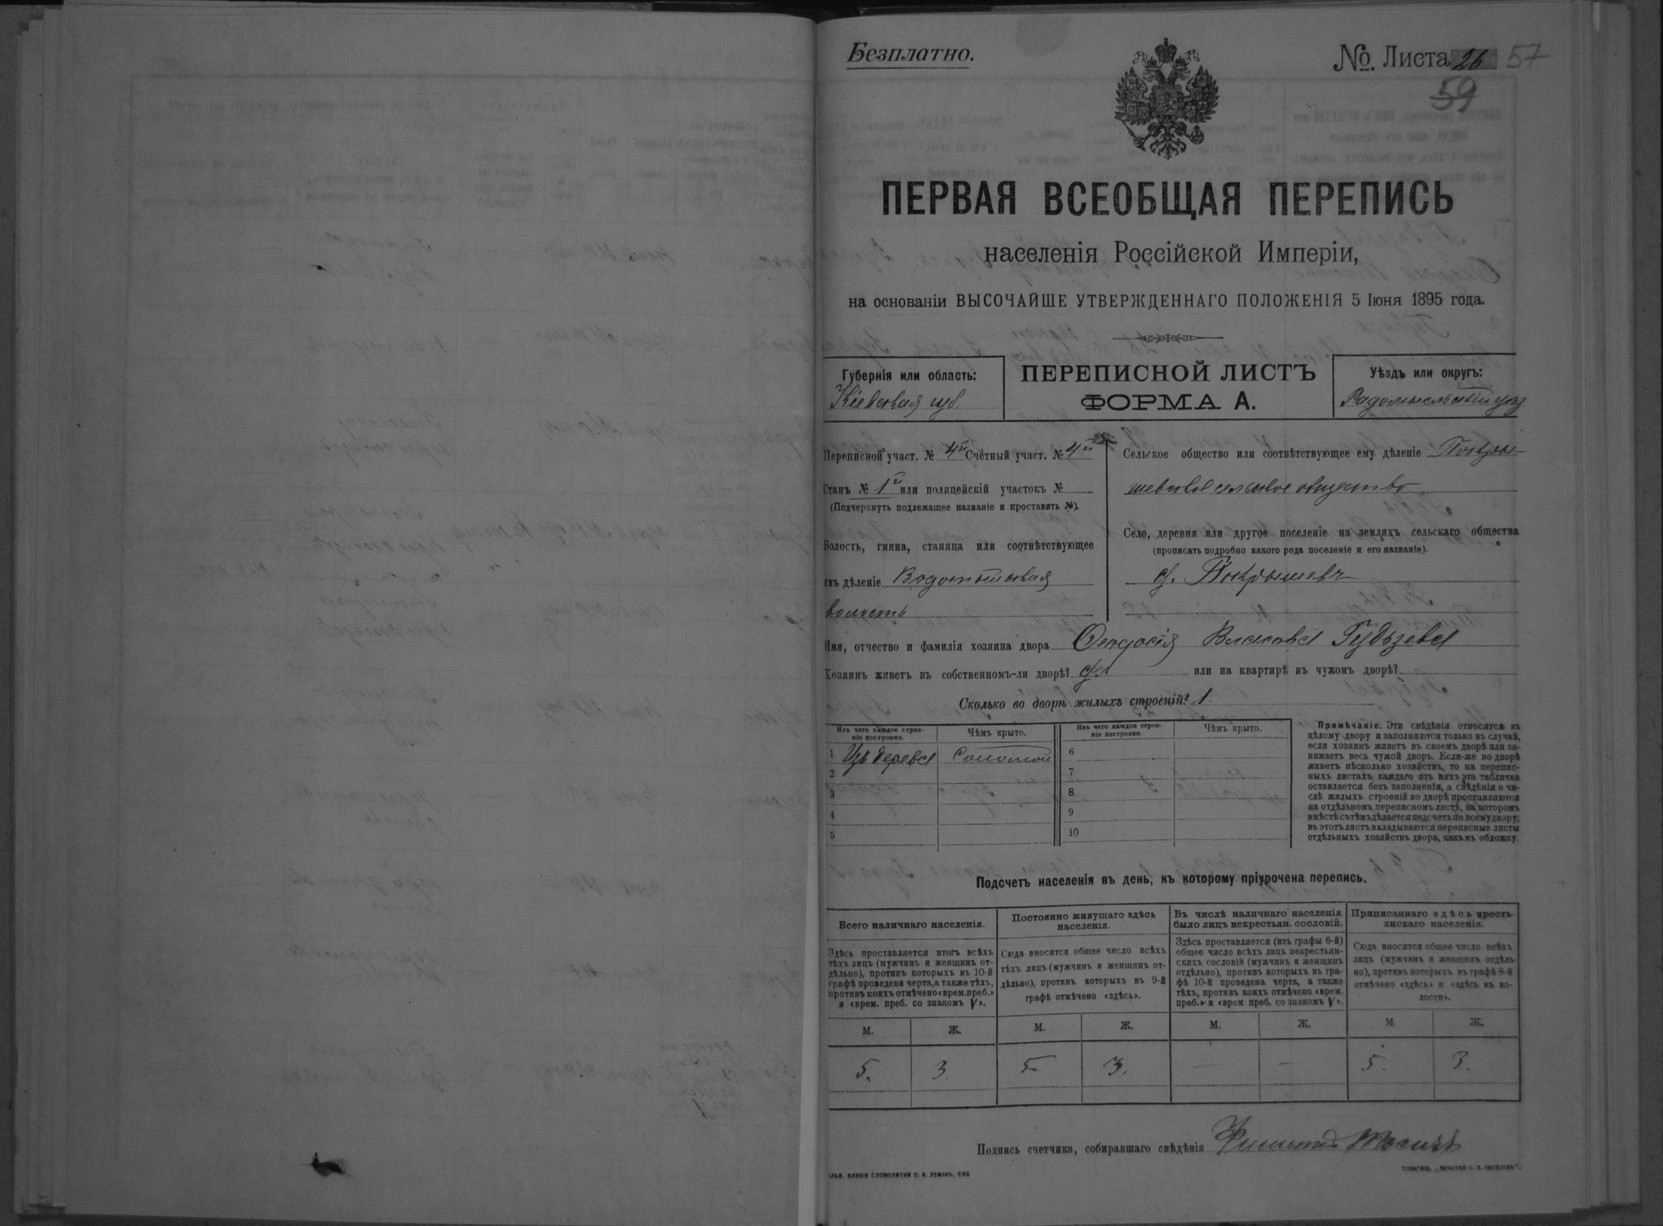 Безплатно.
№. Листа 26 57
59
ПЕРВАЯ ВСЕОБЩАЯ ПЕРЕПИСЬ
населенія Россійской Имперіи,
на основаніи ВЫСОЧАЙШЕ УТВЕРЖДЕННАГО ПОЛОЖЕНІЯ 5 Іюня 1895 года.
Губернія или область:
Кіевская губ.
ПЕРЕПИСНОЙ ЛИСТЪ
ФОРМА А.
Уѣздъ или округъ:
Радомысльскій уѣзд
Переписной участ. № 4й Счётный участ. № 4й
Станъ № 1й или полицейскій участокъ №
(Подчеркнуть подлежащее названіе и проставить №).
Волость, гмина, станица или соотвѣтствующее
имъ дѣленіе Водотыевская
волость
Сельское общество или соотвѣтствующее ему дѣленіе Покры-
шевское сельское общество
Село, деревня или другое поселеніе на земляхъ сельскаго общества
(прописать подробно какого рода поселеніе и его названіе).
с. Покрышевъ
Имя, отчество и фамилія хозяина двора Феодосія Власова
Хозяинъ живетъ въ собственномъ-ли дворѣ? да или на квартирѣ въ чужомъ дворѣ?
Сколько во дворѣ жилыхъ строеній? 1.
Изъ чего каждое строе-
ніе построено.
Чѣмъ крыто.
Изъ чего каждое строе-
ніе построено.
Чѣмъ крыто.
1 Изъ дерева Соломой 6
2 7
3 8
4 9
5 10
Примѣчаніе. Эти свѣдѣнія относятся къ
цѣлому двору и заполняются только въ случаѣ,
если хозяинъ живетъ въ своемъ дворѣ или за-
нимаетъ весь чужой дворъ. Если-же во дворѣ
живетъ нѣсколько хозяйствъ, то на перепис-
ныхъ листахъ каждаго изъ нихъ эта табличка
оставляется безъ заполненія, а свѣдѣнія о чи-
слѣ жилыхъ строеній во дворѣ проставляются
на отдѣльномъ переписномъ листѣ, на которомъ
вмѣстѣ съ тѣмъ дѣлается подсчетъ по всему двору;
въ этотъ листъ вкладываются переписные листы
отдѣльныхъ хозяйствъ двора, какъ въ обложку.
Подсчетъ населенія въ день, къ которому пріурочена перепись.
Всего наличнаго населенія.
Здѣсь проставляется итогъ всѣхъ
тѣхъ лицъ (мужчинъ и женщинъ от-
дѣльно), противъ которыхъ въ 10-й
графѣ проведена черта, а также тѣхъ,
противъ коихъ отмѣчено «врем. преб.»
и «врем. преб. со знакомъ V».
Постоянно живущаго здѣсь
населенія.
Сюда вносится общее число всѣхъ
тѣхъ лицъ (мужчинъ и женщинъ от-
дѣльно), противъ которыхъ въ 9-й
графѣ отмѣчено «здѣсь».
Въ числѣ наличнаго населенія
было лицъ некрестьян. сословій.
Здѣсь проставляется (изъ графы 6-й)
общее число всѣхъ лицъ некрестьян-
скихъ сословій (мужчинъ и женщинъ
отдѣльно), противъ которыхъ въ гра-
фѣ 10-й проведена черта, а также
тѣхъ, противъ коихъ отмѣчено «врем.
преб.» и «врем. преб. со знакомъ V».
Приписаннаго здѣсь кресть-
янскаго населенія.
Сюда вносится общее число всѣхъ
лицъ (мужчинъ и женщинъ отдѣль-
но), противъ которыхъ въ графѣ 8-й
отмѣчено «здѣсь» и «здѣсь въ во-
лости».
М. Ж. М. Ж. М. Ж. М. Ж.
5. 3. 5 3. — — 5. 3.
Подпись счетчика, собиравшаго свѣдѣнія